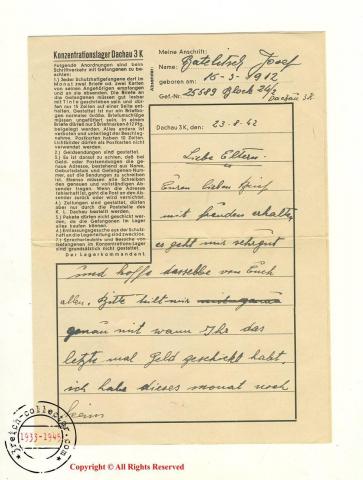 Konzentrationslager Dachau 3 K
Folgende Anordnungen sind beim
Schriftverkehr mit Gefangenen zu
beachten:
1.) Jeder Schutzhaftgefangene darf im
Monat zwei Briefe od. zwei Karten
von seinen Angehörigen empfangen
und an sie absenden. Die Briefe an
die Gefangenen müssen gut lesbar
mit Tinte geschrieben sein und dür-
fen nur 15 Zeilen auf einer Seite ent-
halten. Gestattet ist nur ein Briefbogen
normaler Größe. Briefumschläge
müssen ungefüttert sein. In einem
Briefe dürfen nur 5 Briefmarken à 12 Pfg.
beigelegt werden. Alles andere ist
verboten und unterliegt der Beschlag-
nahme. Postkarten haben 10 Zeilen.
Lichtbilder dürfen als Postkarten nicht
verwendet werden.
2.) Geldsendungen sind gestattet.
3.) Es ist darauf zu achten, daß bei
Geld- oder Postsendungen die ge-
naue Adresse, bestehend aus Name,
Geburtsdatum und Gefangenen-Num-
mer, auf die Sendungen zu schreiben
ist.
4.) Zeitungen sind gestattet, dürfen
aber nur durch die Poststelle des
K. L. Dachau bestellt werden.
5.) Pakete dürfen nicht geschickt wer-
den, da die Gefangenen im Lager
alles kaufen können.
6.) Entlassungsgesuche aus der Schutz-
haft an die Lagerleitung sind zwecklos.
7.) Sprecherlaubnis und Besuche von
Gefangenen im Konzentrations-Lager
sind grundsätzlich nicht gestattet.
Der Lagerkommandant
Absender:
Meine Anschrift:
Name: Josef
geboren am: 15-3-1912
Gef.-Nr. 25589 Block 24/2
Dachau 3K
Dachau 3 K, den: 23-8-42
Liebe Eltern.
Euren lieben Brief
mit freuden erhalten,
es geht mir sehr gut
und hoffe dasselbe von Euch
allen. Bitte teilt mir
genau mit wann Ihr das
letzte mal Geld geschickt habt.
ich habe dieses monat noch
keins
3reich-collector.com
1933-1945
Copyright © All Rights Reserved